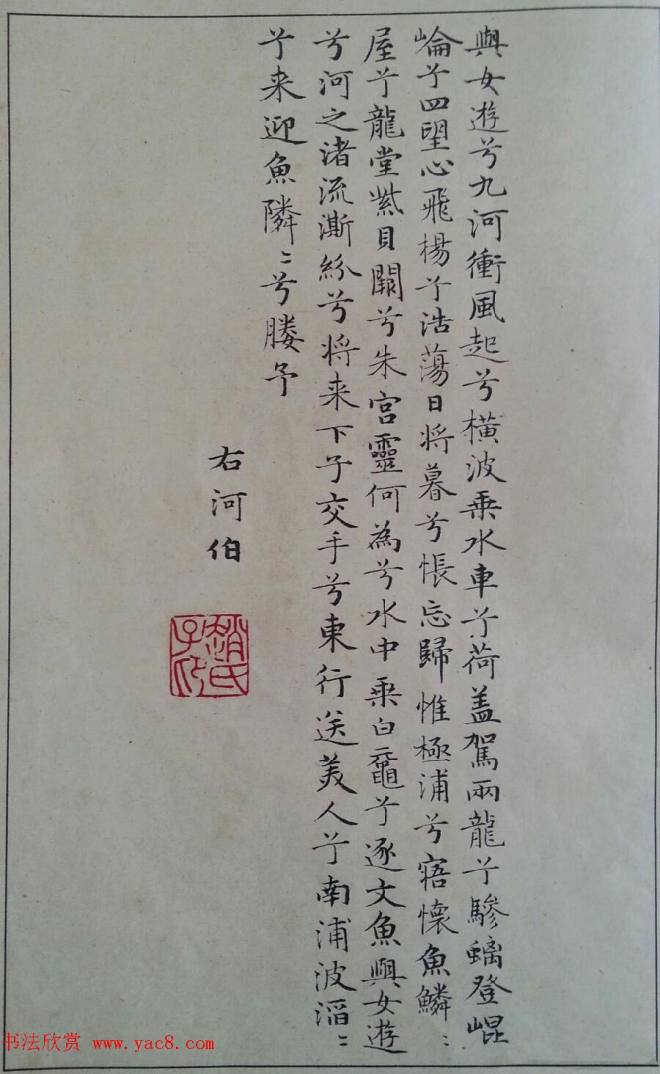 與女遊兮九河衝風起兮横波乗水車兮荷盖駕兩龍兮驂螭登崐
崘兮四望心飛楊兮浩蕩日将暮兮悵忘歸惟極浦兮寤懷魚鱗〻
屋兮龍堂紫貝闕兮朱宫靈何為兮水中乗白黿兮逐文魚與女遊
兮河之渚流澌紛兮将来下子交手兮東行送美人兮南浦波滔〻
兮来迎魚隣〻兮媵予
右河伯
趙氏子印
书法欣赏 www.yac8.com